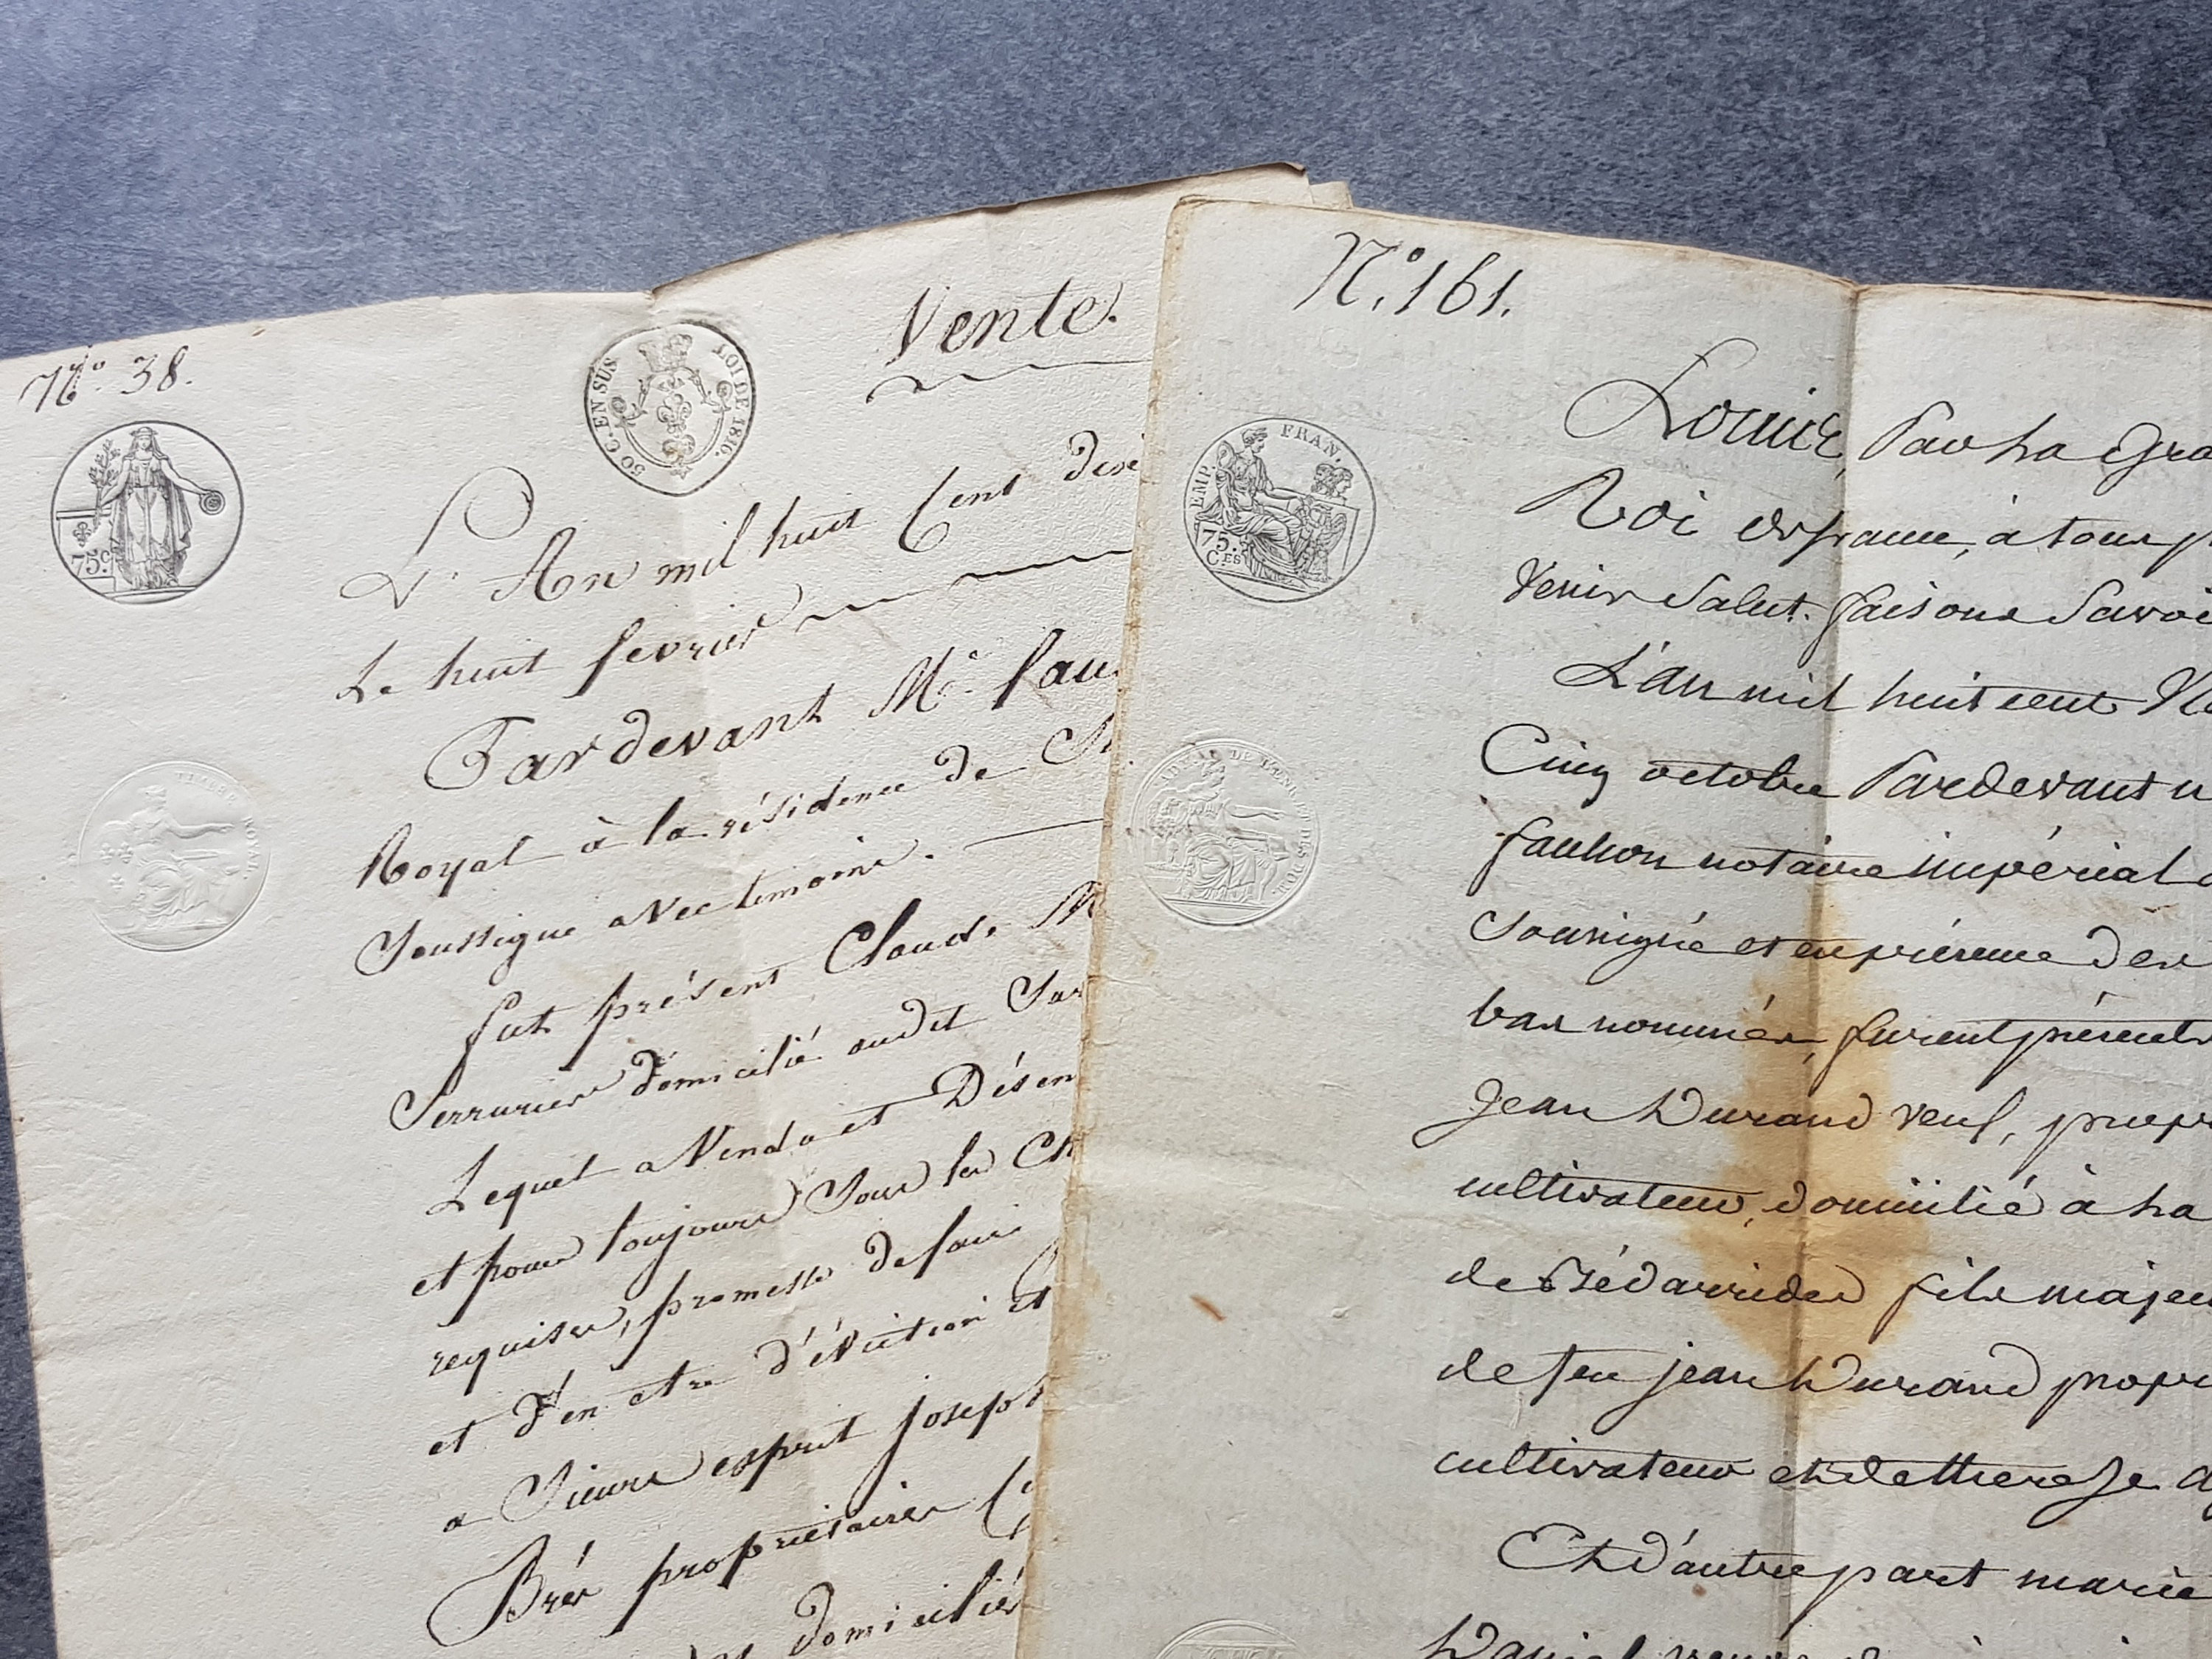 N.º 38.
Vente.
50 C. EN SUS
LOI DE 1816.
75 C.
TIMBRE ROYAL
L'An mil huit Cent dix
Le huit fevrier
Pardevant Me.
Royal à la résidence de
Soussigné avec temoins.
fut présent Claude
Serrurier domicilié audit
Lequel a Vendu et Désem
et pour toujours Sous les
requises, promesse de faire
et d'en etre d'éviction et
a Sieurs esprit joseph
Brès propriétaires
domiciliés
N.º 161.
EMP. FRAN.
75. CES
Louis, Par la Gra
Roi de france, à tous p
Venir Salut. faisons Savoi
L'an mil huit cent
Cinq octobre Pardevant n
faulcon notaire impérial
Soussigné et en présence des
bas nommés, furent présents
Jean Durand veuf, propr
cultivateur, domicilié à la
de Bédarrides fils majeu
de feu jean Durand propr
cultivateur et de therese
Et d'autre part marie